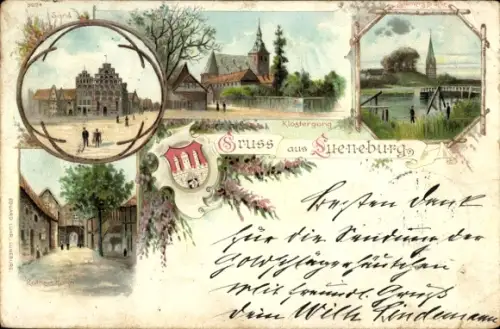 Klostergang
Gruss aus Lueneburg.
Besten Dank
für die Sendung der
Goldschlägerhäutchen
Mit freundl. Gruß
dein Wilh Lindemann